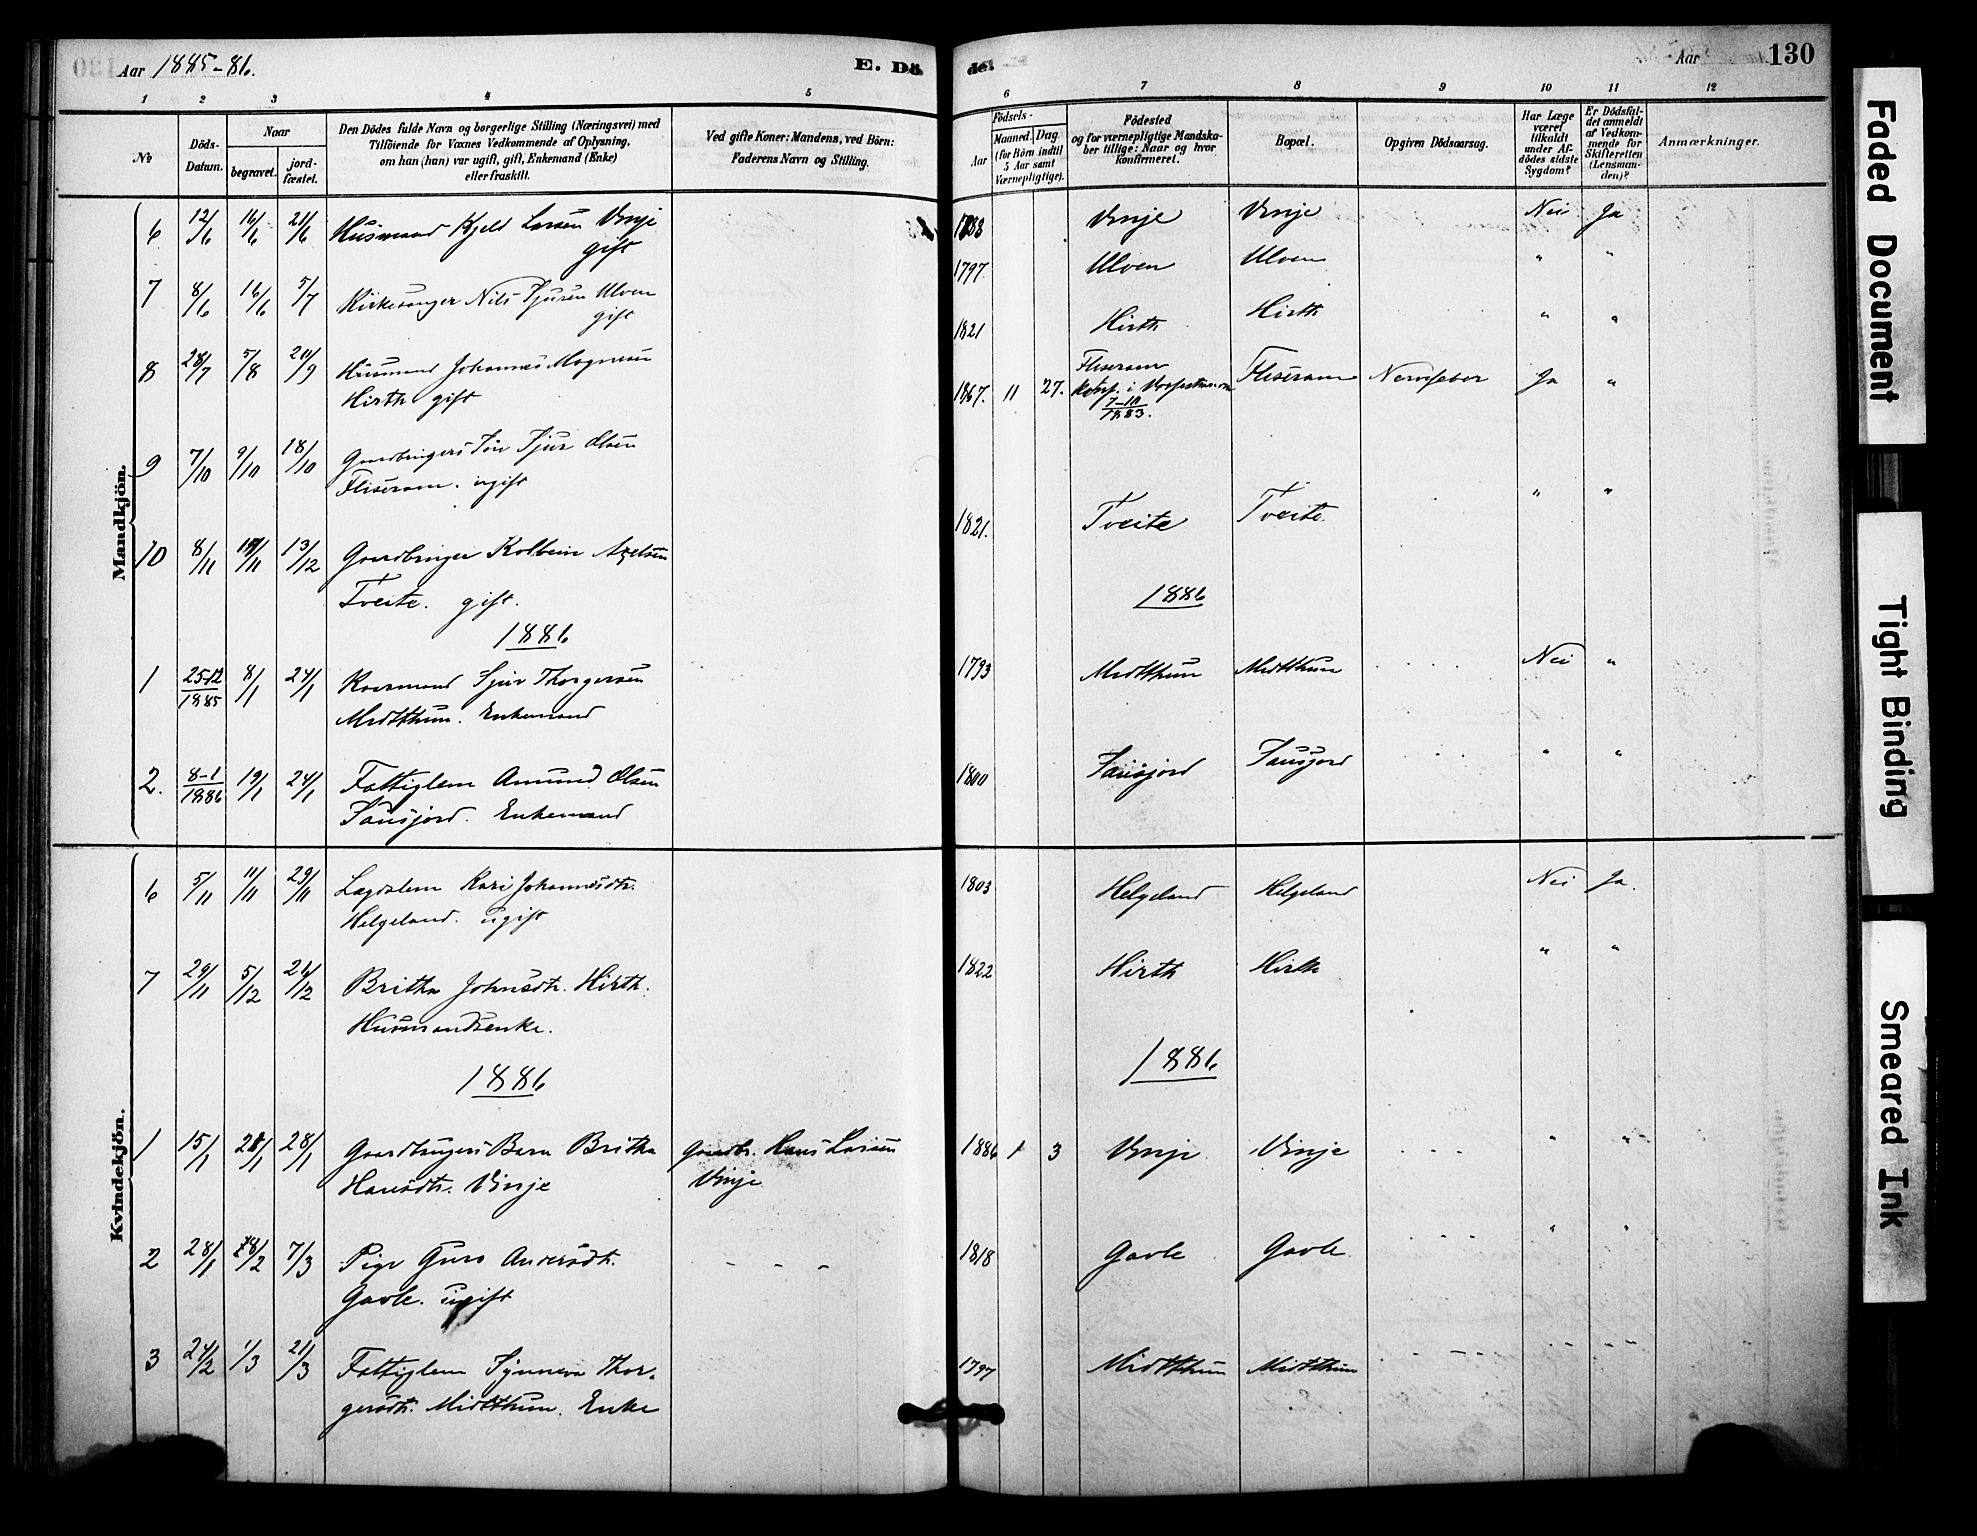 130
Aar 1885-86.
E. Dö
de.
Aar
130
1 2 3 4 5 6 7 8 9 10 11 12
No
Döds-
Datum.
Naar
begravet.
jord-
fæstet.
Den Dödes fulde Navn og borgerlige Stilling (Næringsvei) med
Tilföiende for Voxnes Vedkommende af Oplysning,
om han (hun) var ugift, gift, Enkemand (Enke)
eller fraskilt.
Ved gifte Koner: Mandens, ved Börn:
Faderens Navn og Stilling.
Födsels-
Aar
Maaned. Dag.
(for Börn indtil
5 Aar samt
Værnepligtige).
Födested
og for værnepligtige Mandska-
ber tillige: Naar og hvor
konfirmeret.
Bopæl.
Opgiven Dödsaarsag.
Har Læge
været
tilkaldt
under Af-
dödes sidste
Sygdom?
Er Dödsfal-
det anmeldt
af Vedkom-
mende for
Skifteretten
(Lensman-
den)?
Anmærkninger.
Mandkjön.
6 12/6 16/6 21/6 Husmand Kjeld Larsen Vinje
gift
Vinje Vinje Nei Ja
7 8/6 16/6 5/7 Kirkesanger Nils Sjursen Ulven
gift
1797. Ulven Ulven " "
8 28/7 5/8 20/9 Husmand Johannes Magnesen
Hirth gift
1821 Hirth Hirth " "
9 7/10 9/10 18/10 Gaardbrugers Søn Sjur Olsen
Fliseram. ugift
1867. 11 27. Fliseram
Konf. i
7-10
1883.
Fliseram Nervefeber Ja "
10 8/11 13/12 Gaardbruger Kolbein Axelsen
Tveite. gift.
1821. Tveite Tveite. " "
1886
1886
1 25-12
1885
8/1 24/1 Kaarmand Sjur Thorgersen
Midtthun. Enkemand
1793 Midtthun Midtthun Nei "
2. 8-1
1886
19/1 24/1 Fattiglem Amund Olsen
Sausjord. Enkemand
1800 Sausjord Sausjord " "
Kvindekjön.
6 5/11 11/11 29/11 Lægdslem Kari Johannesdtr.
Helgeland. ugift
1803 Helgeland Helgeland Nei Ja.
7 29/11 5/12 26/12 Britha Johnsdtr. Hirth.
Husmandsenke.
1822 Hirth Hirth " "
1886
1886
1 15/1 28/1 Gaardbrugers Barn Britha
Hansdtr. Vinje
Gaardbr. Hans Larsen
Vinje
1886 1 3 Vinje Vinje " "
2 28/1 7/3 Pige Guro Andersdtr.
Gavle. ugift
1818 Gavle Gavle. " "
3 24/2 1/3 21/3 Fattiglem Synneva Thor-
gersdtr. Midtthun. Enke
1797 Midtthun Midtthun
Faded Document
Tight Binding
Smeared Ink